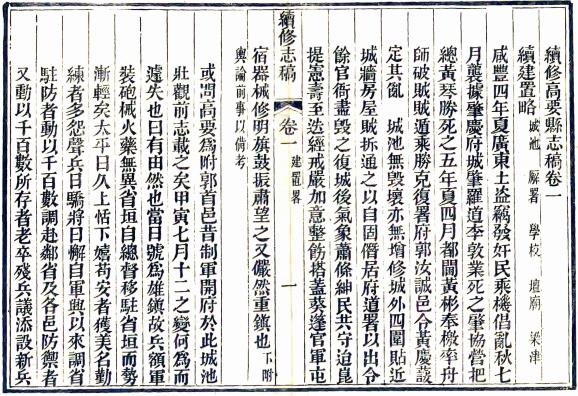 續修高要縣志稿卷一
續建置略 城池 廨署 學校 壇廟 梁津
咸豐四年夏廣東土盜竊發奸民乘機倡亂秋七
月襲據肇慶府城肇羅道李敦業死之肇協營把
總黃琴勝死之五年夏四月都閫黃彬奉檄率舟
師破賊賊遁乘勝克復署府郭汝誠邑令黃慶護
定其亂 城池無毀壞亦無增修城外四圍貼近
城牆房屋賊拆通之以自固僭居府道署以出令
餘官衙盡毀之復城後氣象蕭條紳民共守迨崑
提憲壽至迭經戒嚴加意整飭搭蓋葵篷官軍屯
宿器械修明旗鼓振肅望之又儼然重鎭也 下附
輿論前事以備考
續修志稿
卷一 建置畧
一
或問高要爲附郭首邑昔制軍開府於此城池
壯觀前志載之矣甲寅七月十二之變何爲而
遽失也曰有由然也當日號爲雄鎭故兵額軍
裝砲械火藥無異省垣自總督移駐省垣而勢
漸輕矣太平日久上恬下嬉苟安者獲美名勤
練者多怨聲兵日驕將日懈自軍興以來調省
駐防者動以千百數調赴鄰省及各邑防禦者
又動以千百數所存者老卒殘兵議添設新兵